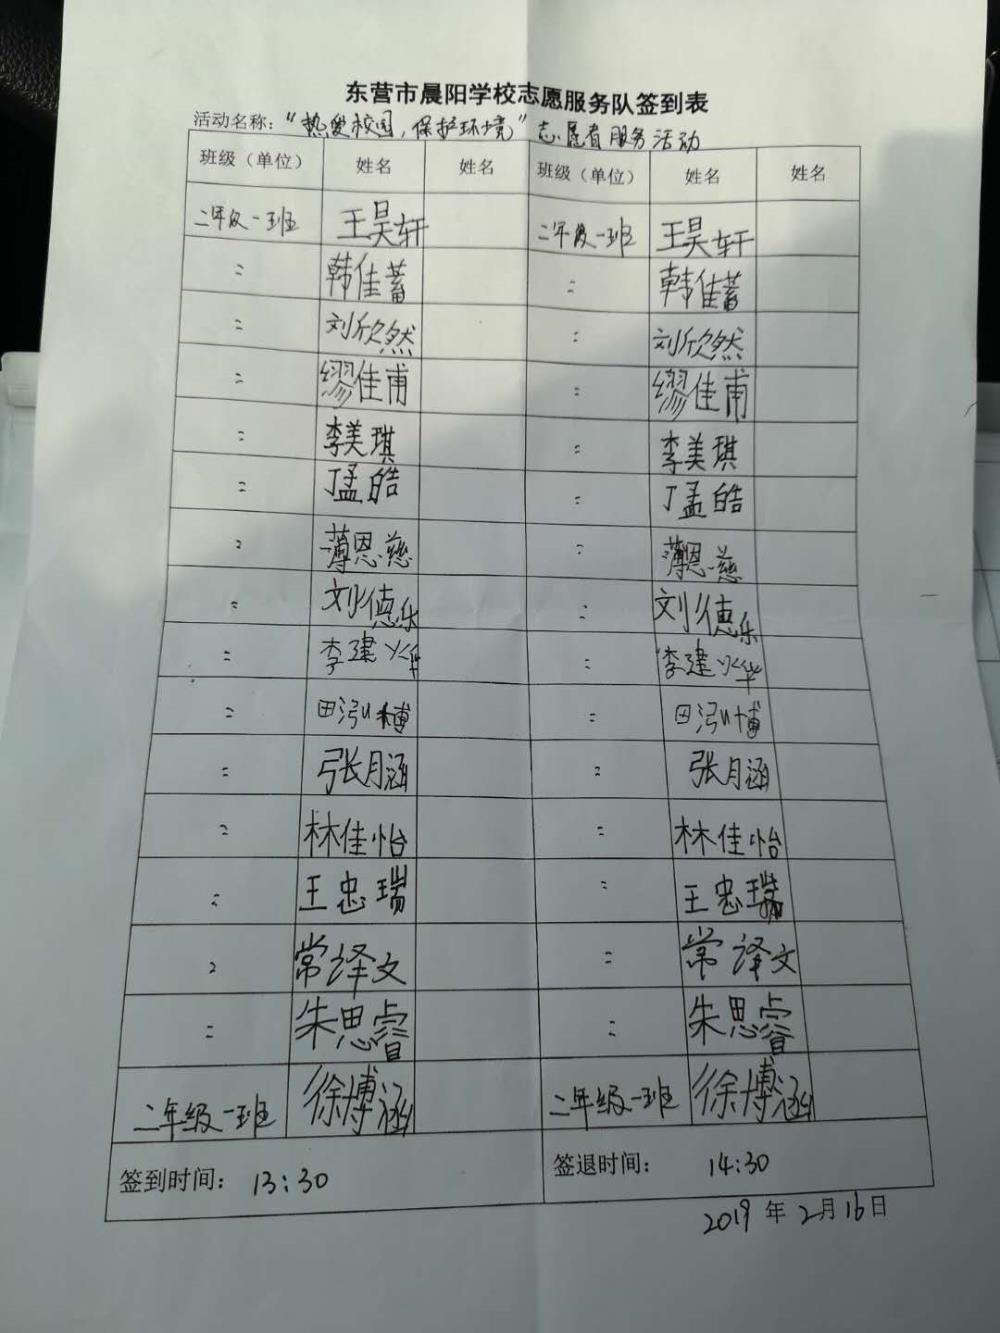 东营市晨阳学校志愿服务队签到表
活动名称：“热爱校园，保护环境”志愿者服务活动
班级（单位） 姓名 姓名 班级（单位） 姓名 姓名
二年级一班 王昊轩 二年级一班 王昊轩
〃 韩佳蓄 〃 韩佳蓄
〃 刘欣然 〃 刘欣然
〃 缪佳甫 〃 缪佳甫
〃 李美琪 〃 李美琪
〃 丁孟皓 〃 丁孟皓
〃 薄恩慈 〃 薄恩慈
〃 刘德乐 〃 刘德乐
〃 李建烨 〃 李建烨
〃 田泓博 〃 田泓博
〃 张月涵 〃 张月涵
〃 林佳怡 〃 林佳怡
〃 王忠瑞 〃 王忠瑞
〃 常泽文 〃 常泽文
〃 朱思睿 〃 朱思睿
二年级一班 徐博涵 二年级一班 徐博涵
签到时间： 13:30 签退时间： 14:30
2019年2月16日